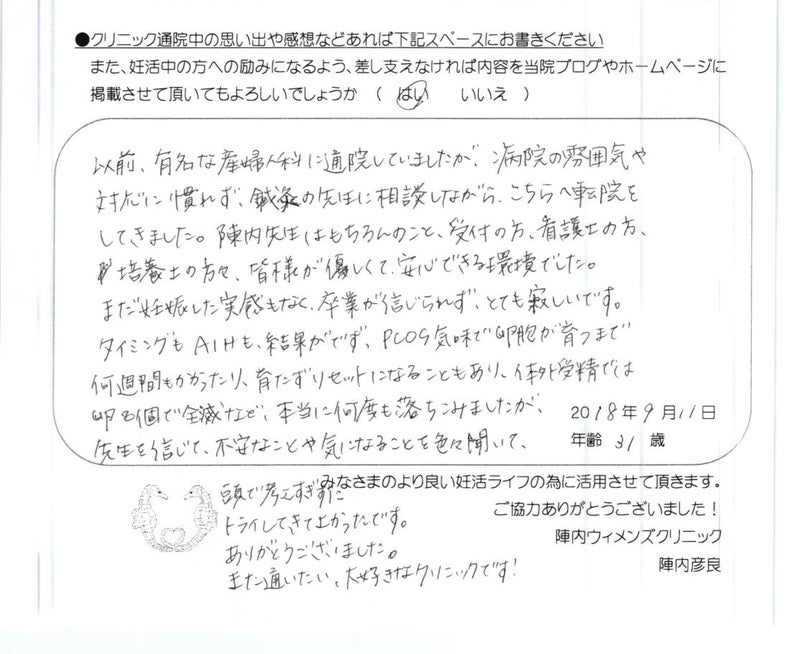 ●クリニック通院中の思い出や感想などあれば下記スペースにお書きください
また、妊活中の方への励みになるよう、差し支えなければ内容を当院ブログやホームページに
掲載させて頂いてもよろしいでしょうか ( はい いいえ )
以前、有名な産婦人科に通院していましたが、病院の雰囲気や
対応に慣れず、鍼灸の先生に相談しながら、こちらへ転院を
してきました。陣内先生はもちろんのこと、受付の方、看護士の方、
培養士の方々、皆様が優しくて、安心できる環境でした。
まだ妊娠した実感もなく、卒業が信じられず、とても寂しいです。
タイミングもAIHも、結果がでず、PCOS気味で卵胞が育つまで
何週間もかかったり、育たずリセットになることもあり、体外受精では
卵8個で全滅など、本当に何度も落ちこみましたが、
先生を信じて、不安なことや気になることを色々聞いて、
2018年9月11日
年齢 31 歳
頭で考えすぎずに
トライしてきてよかったです。
ありがとうございました。
また通いたい、大好きなクリニックです!
みなさまのより良い妊活ライフの為に活用させて頂きます。
ご協力ありがとうございました!
陣内ウィメンズクリニック
陣内彦良